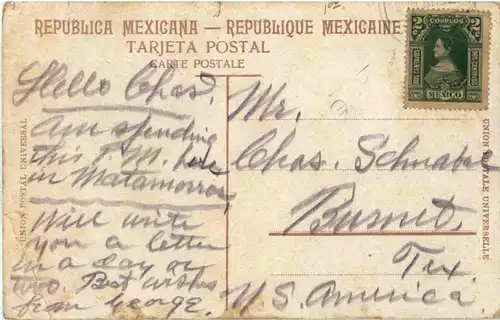 REPUBLICA MEXICANA — REPUBLIQUE MEXICAINE
TARJETA POSTAL
CARTE POSTALE
UNION POSTAL UNIVERSAL
Hello Chas.
Am spending
this P.M. here
in Matamorros
Will write
you a letter
in a day or
two. Best wishes
from George.
Mr.
Chas. Schwabe
Burnet,
Tex.
U.S. America
UNION POSTALE UNIVERSELLE
2 CORREOS 2
DOS CENTAVOS
DOS CENTAVOS
MEXICO